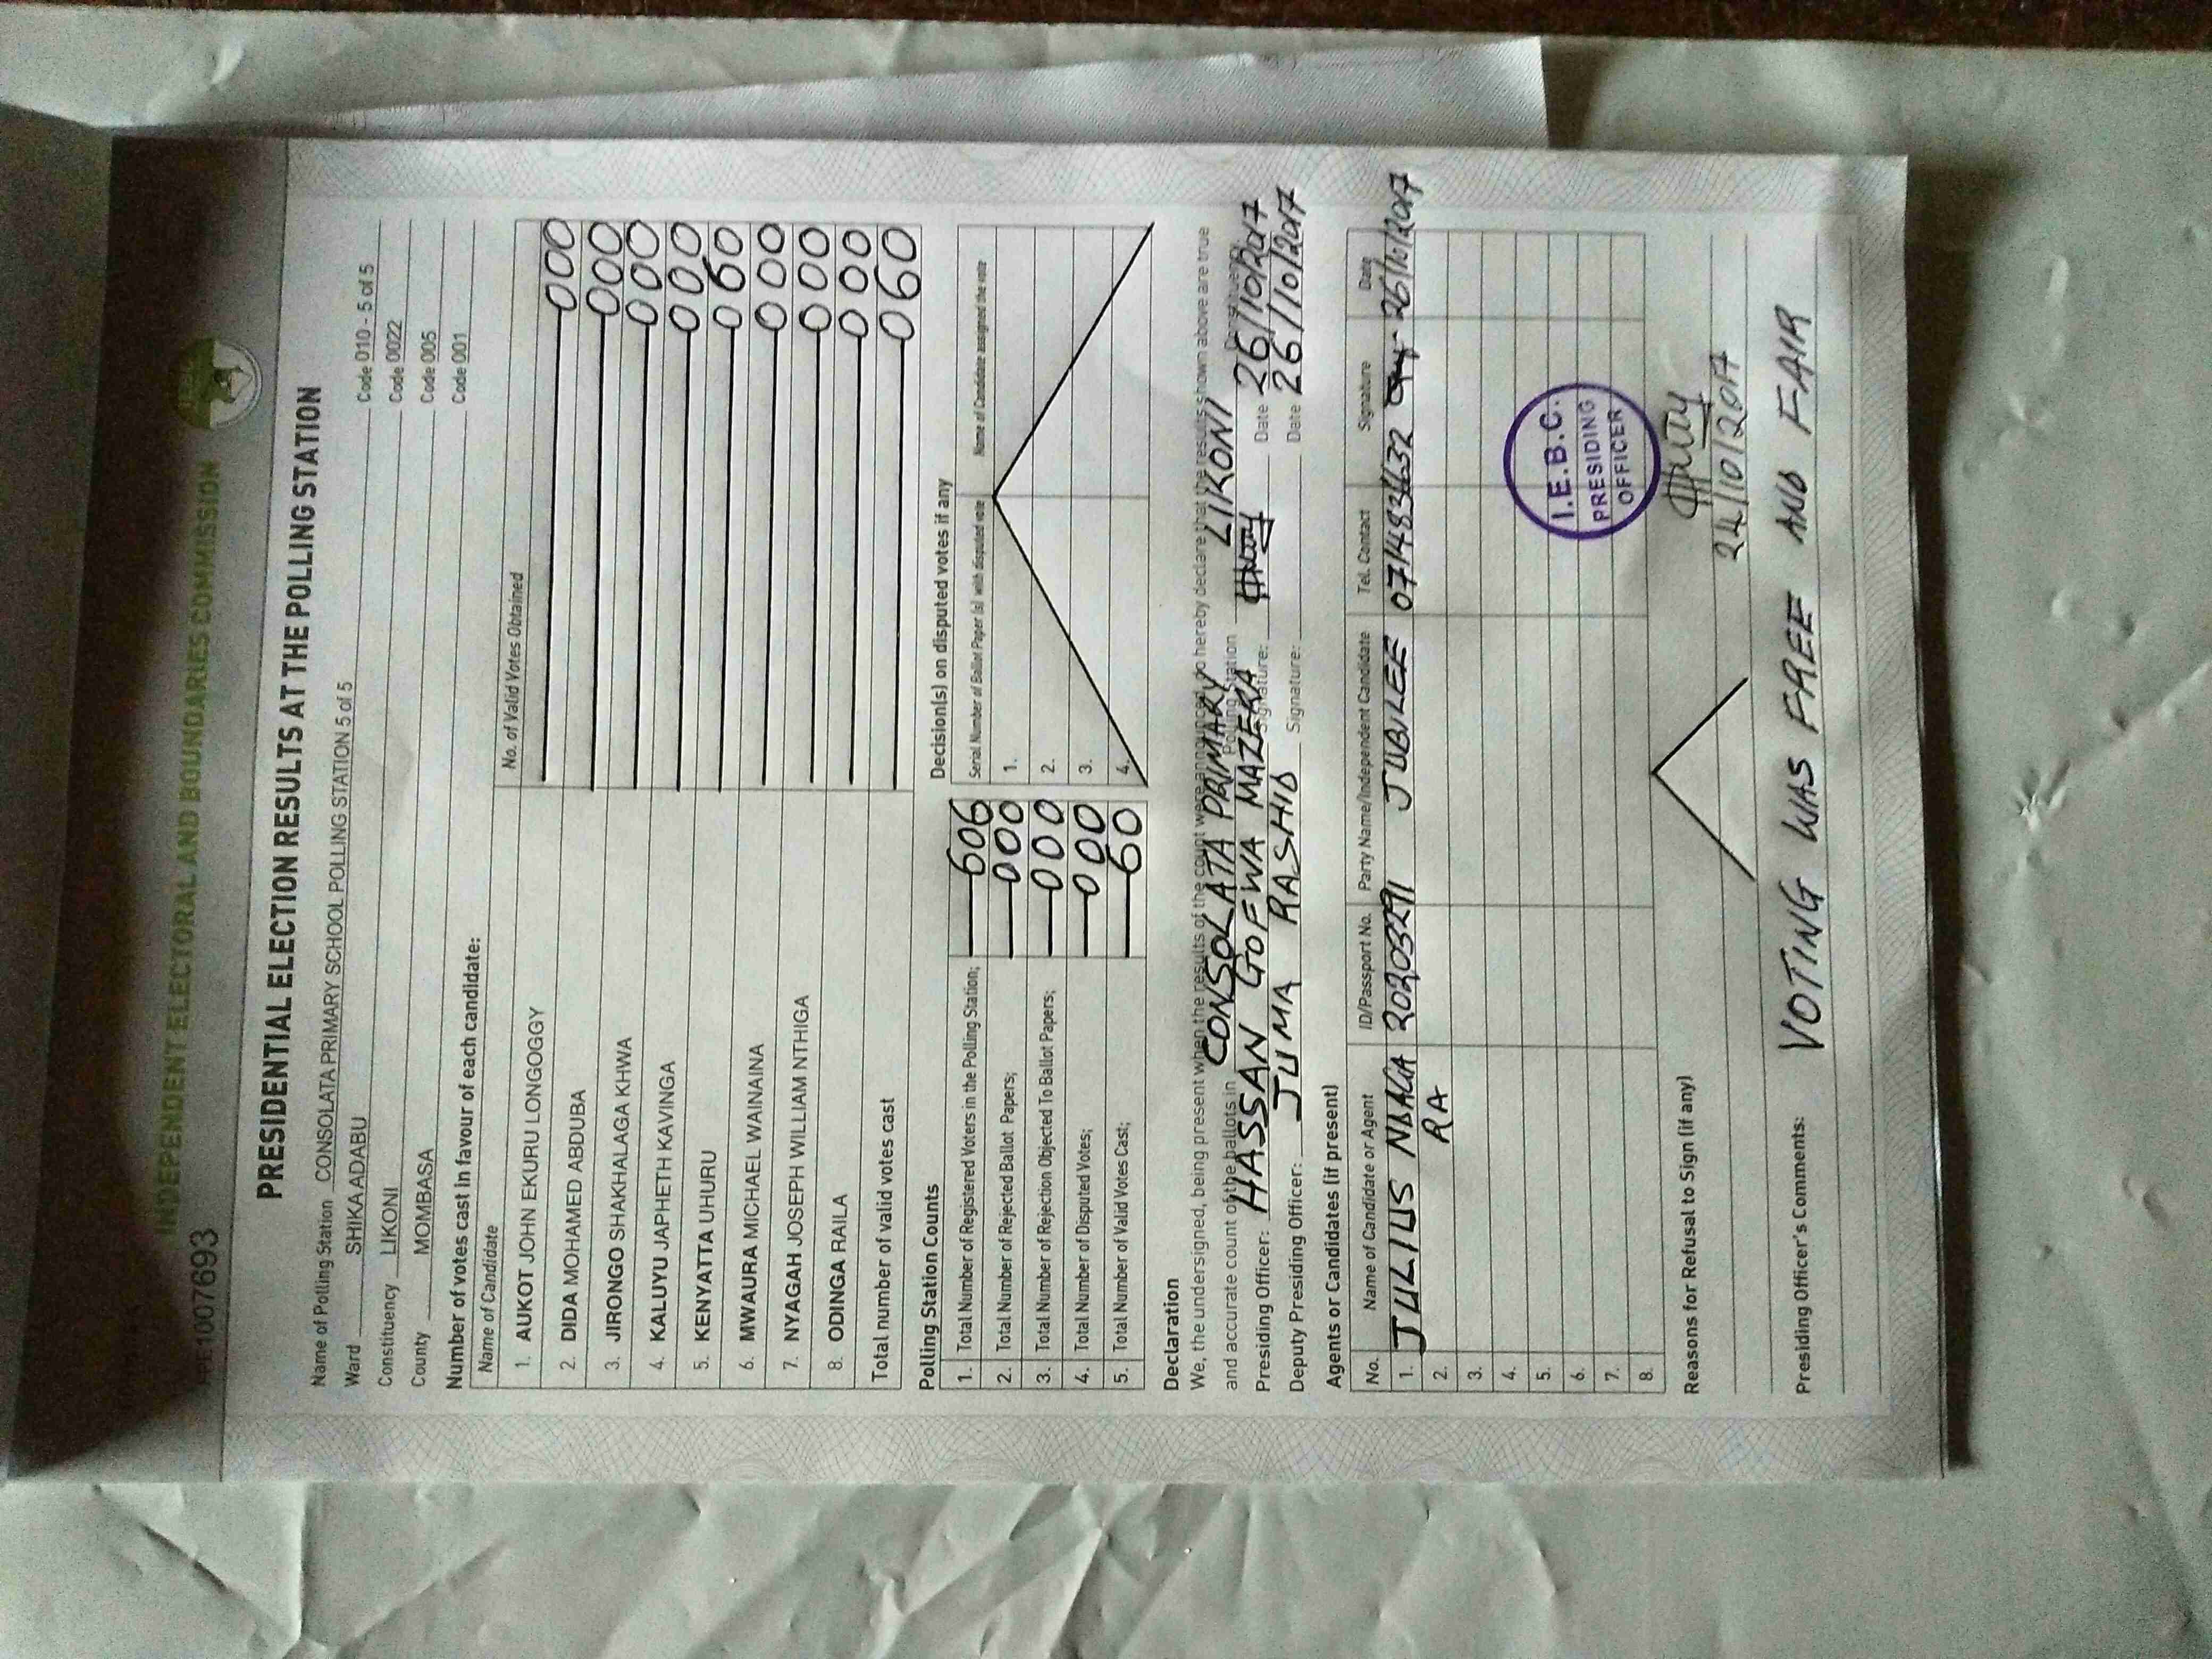 INDEPENDENT ELECTORAL AND BOUNDARIES COMMISSION
PRESIDENTIAL ELECTION RESULTS AT THE POLLING STATION
Name of Polling Station CONSOLATA PRIMARY SCHOOL POLLING STATION 5 of 5 Code 010 - 5 of 5
Ward SHIKA ADABU Code 0022
Constituency LIKONI Code 005
County MOMBASA Code 001
Number of votes cast in favour of each candidate:
Name of Candidate No. of Valid Votes Obtained
1. AUKOT JOHN EKURU LONGOGGY 000
2. DIDA MOHAMED ABDUBA 000
3. JIRONGO SHAKHALAGA KHWA 000
4. KALUYU JAPHETH KAVINGA 000
5. KENYATTA UHURU 060
6. MWAURA MICHAEL WAINAINA 000
7. NYAGAH JOSEPH WILLIAM NTHIGA 000
8. ODINGA RAILA 000
Total number of valid votes cast 060
Polling Station Counts
1. Total Number of Registered Voters in the Polling Station; 606
2. Total Number of Rejected Ballot Papers; 000
3. Total Number of Rejection Objected To Ballot Papers; 000
4. Total Number of Disputed Votes; 000
5. Total Number of Valid Votes Cast; 60
Decision(s) on disputed votes if any
Serial Number of Ballot Paper (s) with disputed vote Name of Candidate assigned the vote
1.
2.
3.
4.
Declaration
We, the undersigned, being present when the results of the count were announced, do hereby declare that the results shown above are true
and accurate count of the ballots in CONSOLATA PRIMARY Polling Station LIKONI
Presiding Officer: HASSAN GOFWA MAZERA Signature: Date 26/10/2017
Deputy Presiding Officer: JUMA RASHID Signature: Date 26/10/2017
Agents or Candidates (if present)
No. Name of Candidate or Agent ID/Passport No. Party Name/Independent Candidate Tel. Contact Signature Date
1. JULIUS 20203291 JUBILEE 26/10/2017
2. RA
3.
4.
5.
6.
7.
8.
I.E.B.C.
PRESIDING
OFFICER
Reasons for Refusal to Sign (if any)
Presiding Officer's Comments: VOTING WAS FREE AND FAIR